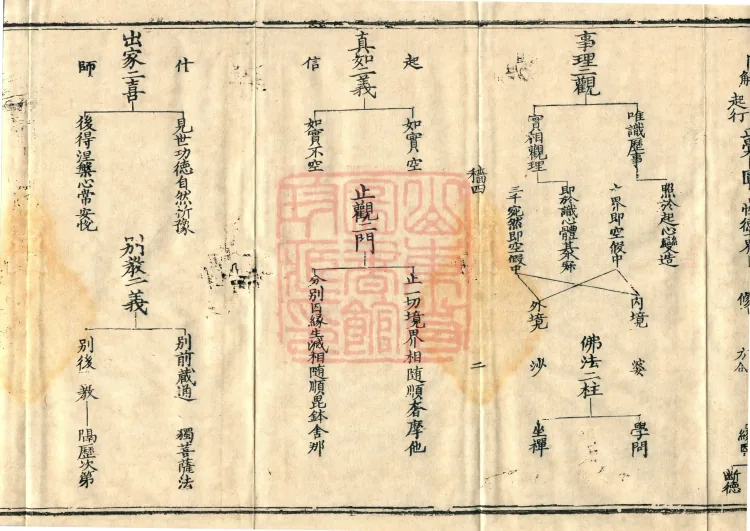 事理二觀
唯識歷事
照於起心變造
實相觀理
即於識心體其寂
十界即空假中
三千宛然即空假中
內境
外境
婆
沙
佛法二柱
學問
坐禪
斷德
起行
真如二義
起
信
如實空
如實不空
止觀二門
止一切境界相隨順奢摩他
分別因緣生滅相隨順毘鉢舍那
二
出家二喜
仕
師
見世功德自然
後得涅槃心常安悅
別教二義
別前藏通
獨菩薩法
別後
教
隔歷次第